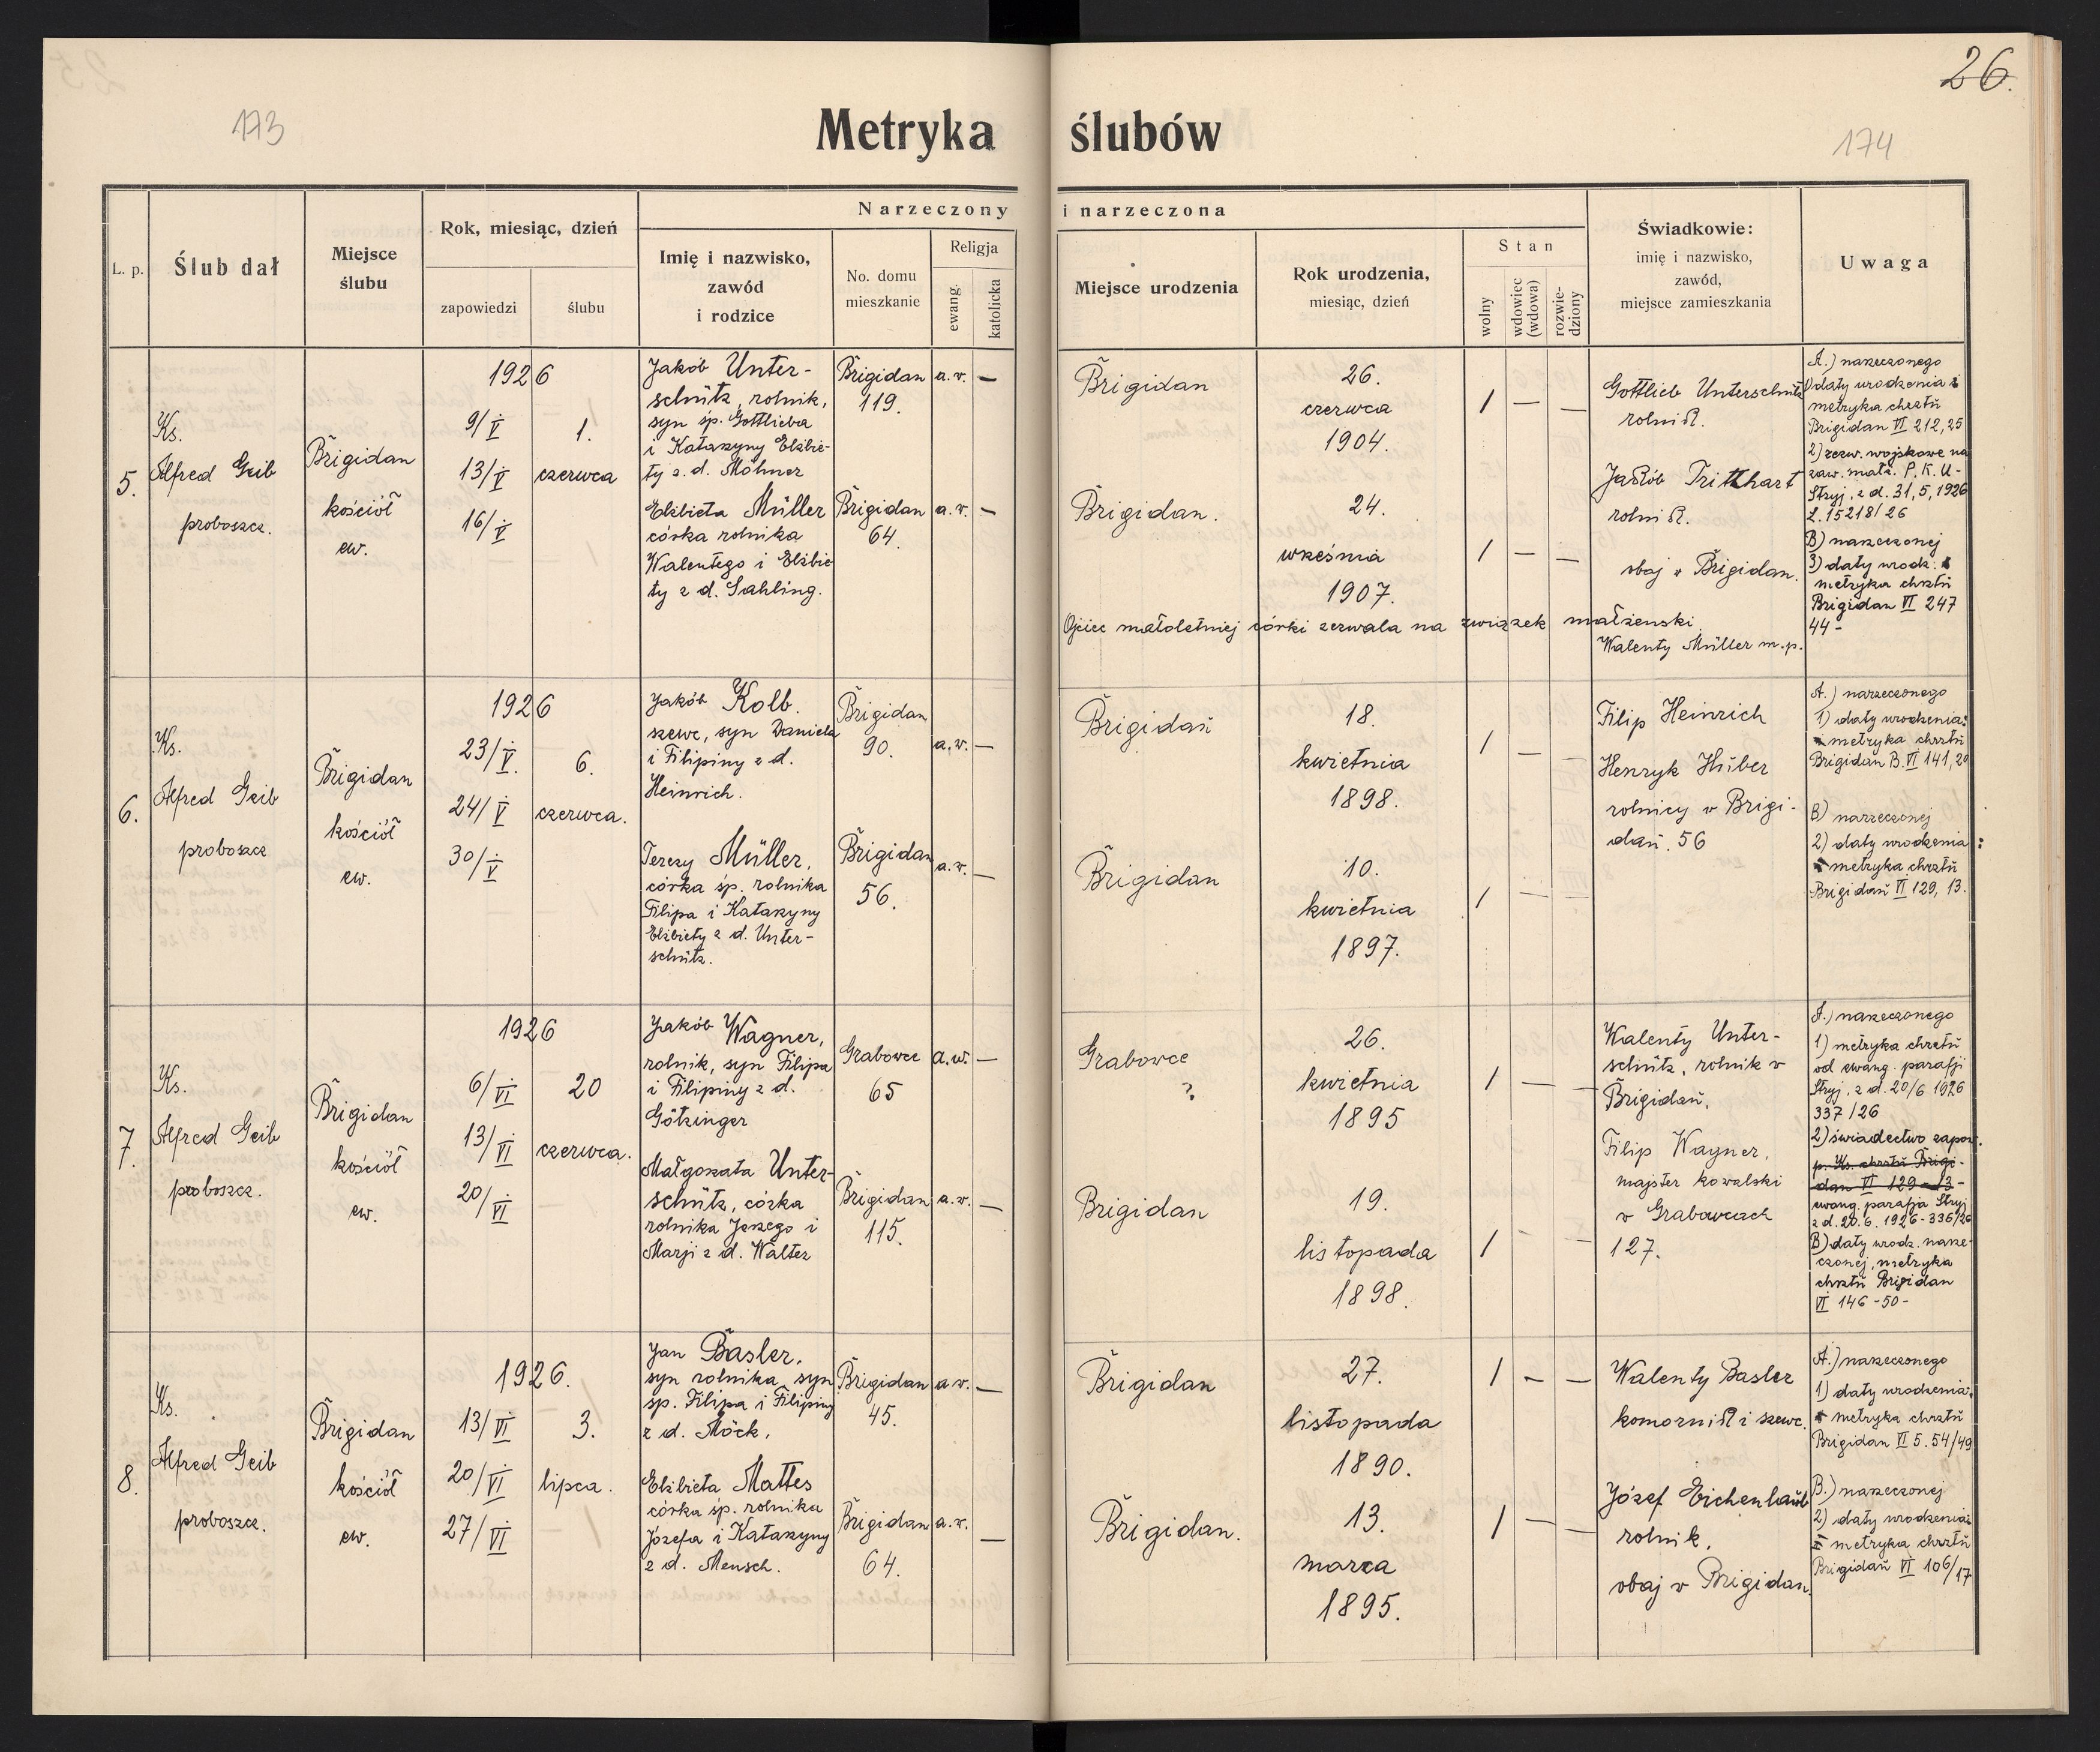 26.
173
174
Metryka ślubów
L. p.
Ślub dał
Miejsce
ślubu
Rok, miesiąc, dzień
zapowiedzi
ślubu
Narzeczony
Imię i nazwisko,
zawód
i rodzice
No. domu
mieszkanie
Religja
ewang.
katolicka
i narzeczona
Miejsce urodzenia
Rok urodzenia,
miesiąc, dzień
Stan
wolny
wdowiec
(wdowa)
rozwie-
dziony
Świadkowie:
imię i nazwisko,
zawód,
miejsce zamieszkania
Uwaga
5.
Ks.
Alfred Geib
proboszcz.
Brigidau
kościół
ew.
1926
9/V
13/V
16/V
1.
czerwca
Jakób Unter-
schütz, rolnik,
syn śp. Gottlieba
i Katarzyny Elżbie-
ty z d. Möhner
Brigidau
119.
a.w. —
Elżbieta Müller
córka rolnika
Walentego i Elżbie
ty z d. Sahling.
Brigidau
64.
a.w. —
Brigidau
26.
czerwca
1904.
1 — —
Brigidau.
24.
września
1907.
1 — —
Gottlieb Unterschütz
rolnik.
Jakób Tritthart
rolnik.
obaj w Brigidau.
Ojciec małoletniej córki zezwala na związek małżeński
Walenty Müller m.p.
A.) narzeczonego
1) daty urodzenia
metryka chrztu
Brigidau VI 212, 25
2) zezw. wojskowe na
zaw. małż. P. K. U-
Stryj, z d. 31, 5, 1926
L. 15218/26
B) narzeczonej
3) daty urodz.
metryka chrztu
Brigidau VI 247
44-
6.
Ks.
Alfred Geib
proboszcz
Brigidau
kościół
ew.
1926
23/V.
24/V
30/V
6.
czerwca.
Jakób Kolb.
szewc, syn Daniela
i Filipiny z d.
Heinrich.
Brigidau
90.
a.w. —
Terezy Müller,
córka śp. rolnika
Filipa i Katarzyny
Elżbiety z d. Unter-
schütz.
Brigidau
56.
a.w. —
Brigidau
18.
kwietnia
1898.
1 — —
Brigidau
10.
kwietnia
1897.
1 — —
Filip Heinrich
Henryk Huber
rolnicy w Brigi-
dau. 56
A.) narzeczonego
1) daty urodzenia:
metryka chrztu
Brigidau B. VI 141, 20
B) narzeczonej
2) daty urodzenia:
metryka chrztu
Brigidau VI 129, 13.
7.
Ks.
Alfred Geib
proboszcz.
Brigidau
kościół
ew.
1926
6/VI
13/VI
20/VI
20
czerwca.
Jakób Wagner,
rolnik, syn Filipa
i Filipiny z d.
Götzinger
Grabowce
65
a.w. —
Małgorzata Unter-
schütz, córka
rolnika Jerzego i
Marji z d. Walter
Brigidau
115.
a.w. —
Grabowce
?
26.
kwietnia
1895
1 — —
Brigidau
19.
listopada
1898.
1 - —
Walenty Unter-
schütz, rolnik w
Brigidau.
Filip Wagner,
majster kowalski
w Grabowcach
127.
A.) narzeczonego
1) metryka chrztu
od ewang. parafji
Stryj, z d. 20/6 1926
337/26
2) świadectwo zapow.
p. Ks. chrztu Brigi-
dau VI 129-13-
ewang. parafja Stryj
z d. 20. 6. 1926 - 336/26
B) daty urodz. narze-
czonej, metryka
chrztu Brigidau
VI 146 -50-
8.
Ks.
Alfred Geib
proboszcz.
Brigidau
kościół
ew.
1926.
13/VI
20/VI
27/VI
3.
lipca.
Jan Basler,
syn rolnika, syn
śp. Filipa i Filipiny
z d. Möck,
Brigidau
45.
a.w. —
Elżbieta Mattes
córka śp. rolnika
Józefa i Katarzyny
z d. Mensch.
Brigidau
64.
a.w. —
Brigidau
27.
listopada
1890.
1 - —
Brigidau.
13.
marca
1895.
1 — —
Walenty Basler
komornik i szewc.
Józef Eichenlaub
rolnik,
obaj w Brigidau.
A.) narzeczonego
1) daty urodzenia.
metryka chrztu
Brigidau II 5. 54/49
B.) narzeczonej
2) daty urodzenia
metryka chrztu
Brigidau VI 106/17